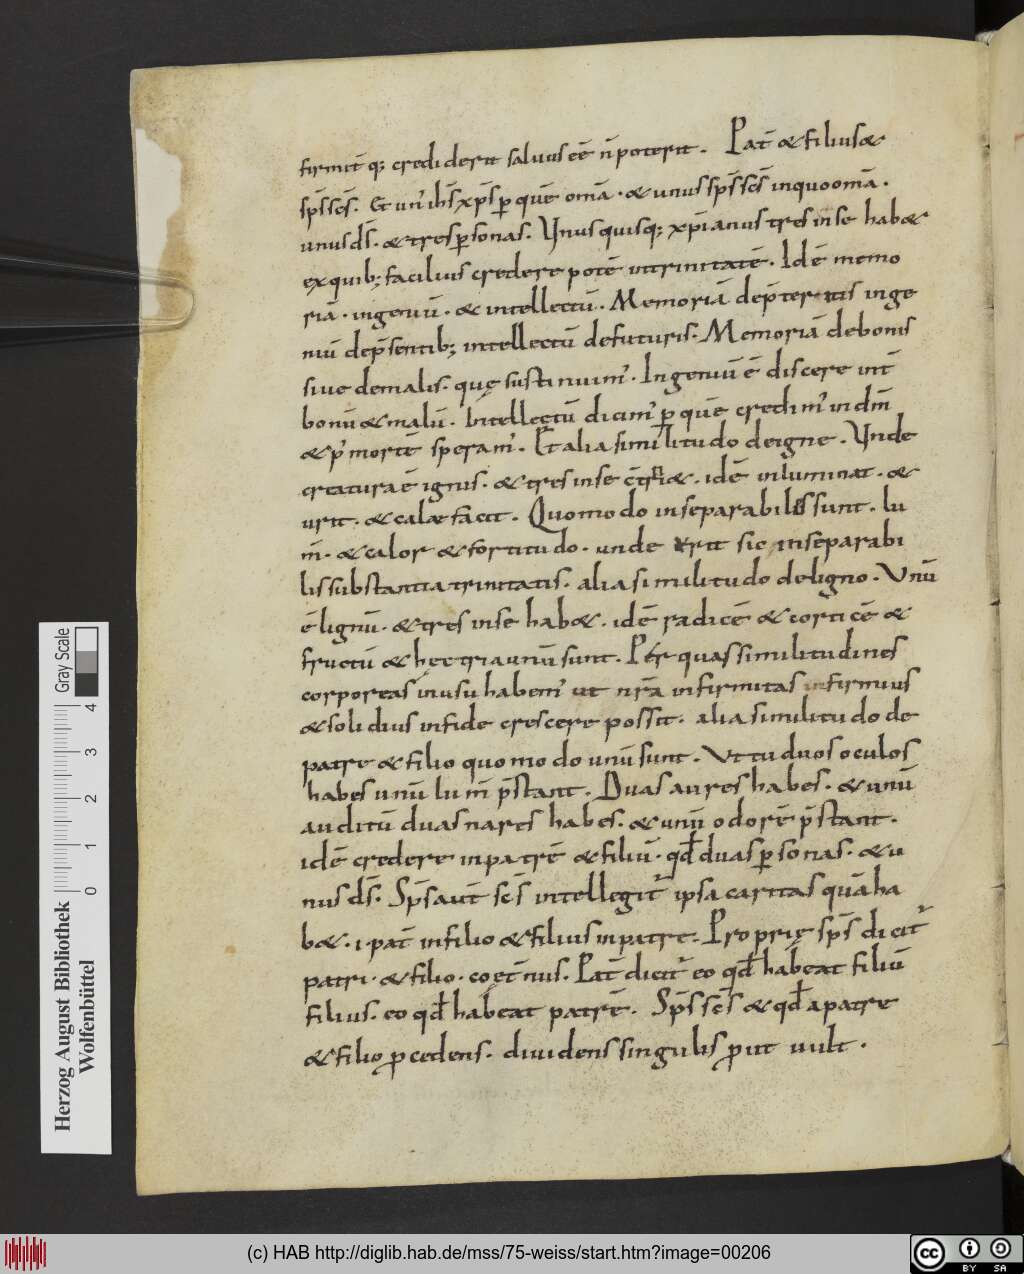 firmit̄ q; crediderit saluus eē n̄ poterit. Pat̄ & filius &
sp̄s sc̄s. Et un' ih̄s xp̄s ꝑ quē om̄a. & unus sp̄s sc̄s in quo om̄a.
unus d̄s. & tres ꝑsonas. Unus quisq; xp̄ianus tres in se hab&
ex quib; facilius credere potē in trinitatē. Idē memo
riā. ingeniū. & intellectū. Memoriā de p̄teritis inge
niū de p̄sentib; intellectū de futuris. Memoriā de bonis
siue de malis. quę sustinuim'. Ingeniū ē discere int̄
bonū & malū. Intellectū dicim' ꝑ quē credim' in dm̄
& p' mortē speram'. Et alia similitudo de igne. Unde
creatura ē ignis. & tres in se . idē inluminat. &
urit. & calefacit. Quomodo inseparabiles sunt. lu
m̄. & calor & fortitudo. unde urit sic inseparabi
lis substantia trinitatis. alia similitudo de ligno. Unū
ē lignū. & tres in se hab&. idē radicē & corticē &
fructū & hęc tria unū sunt. Per quas similitudines
corporeas in usu habem' ut nr̄a infirmitas infirmius
& solidius in fide crescere possit. alia similitudo de
patre & filio quomodo unū sunt. Ut tu duos oculos
habes unū lum̄ p̄stant. Duas aures habes. & unū
auditū duas nares habes. & unū odorē p̄stant.
idē credere in patrē & filiū. qđ duas ꝑsonas. & u
nus d̄s. Sp̄s aut̄ sc̄s intellegit' ipsa caritas quā ha
b&. i. pat̄ in filio & filius in patre. Proprię sp̄s dicit'
patri. & filio. coet̄nus. Pat̄ dicit' eo qđ habeat filiū
filius. eo qđ habeat patrē. Sp̄s sc̄s & qđ a patre
& filio ꝓcedens. diuidens singulis ꝓut uult.
Herzog August Bibliothek
Wolfenbüttel
0 1 2 3 4
Gray Scale
(c) HAB http://diglib.hab.de/mss/75-weiss/start.htm?image=00206
cc BY SA